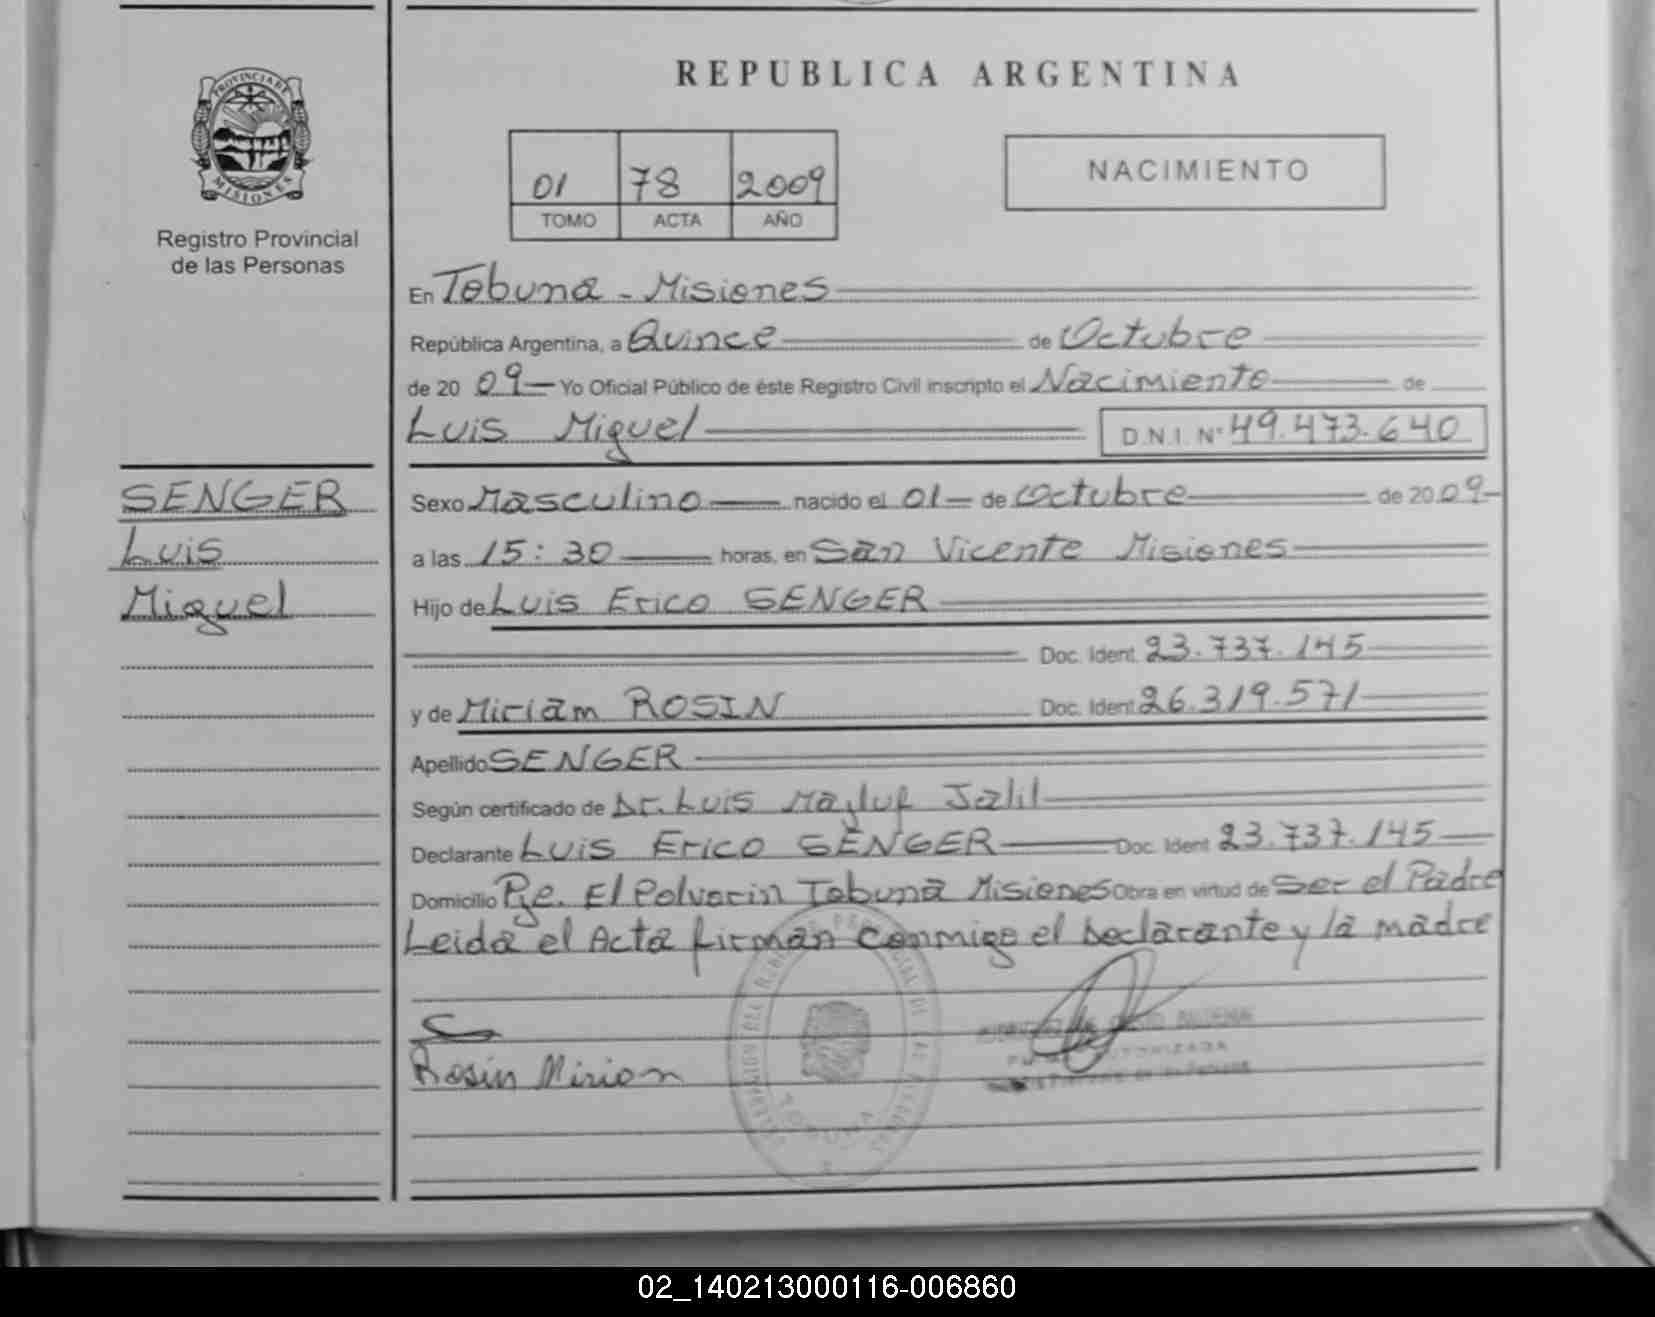 PROVINCIA DE
MISIONES
Registro Provincial
de las Personas
SENGER
Luis
Miguel
REPUBLICA ARGENTINA
01 78 2009
TOMO ACTA AÑO
NACIMIENTO
En Tobuna - Misiones
República Argentina, a Quince de Octubre
de 20 09 Yo Oficial Público de éste Registro Civil inscripto el Nacimiento de
Luis Miguel D.N.I. Nº 49.473.640
Sexo Masculino nacido el 01 de Octubre de 20 09
a las 15:30 horas, en San Vicente Misiones
Hijo de Luis Erico SENGER
Doc. Ident. 23.737.145
y de Miriam ROSIN Doc. Ident. 26.319.571
Apellido SENGER
Según certificado de Dr. Luis Majluf Jalil
Declarante Luis Erico SENGER Doc. Ident. 23.737.145
Domicilio Pje. El Polvorin Tobuna Misiones Obra en virtud de Ser el Padre
Leida el Acta firman conmigo el declarante y la madre
Rosin Mirian
TOBUNA
02_140213000116-006860